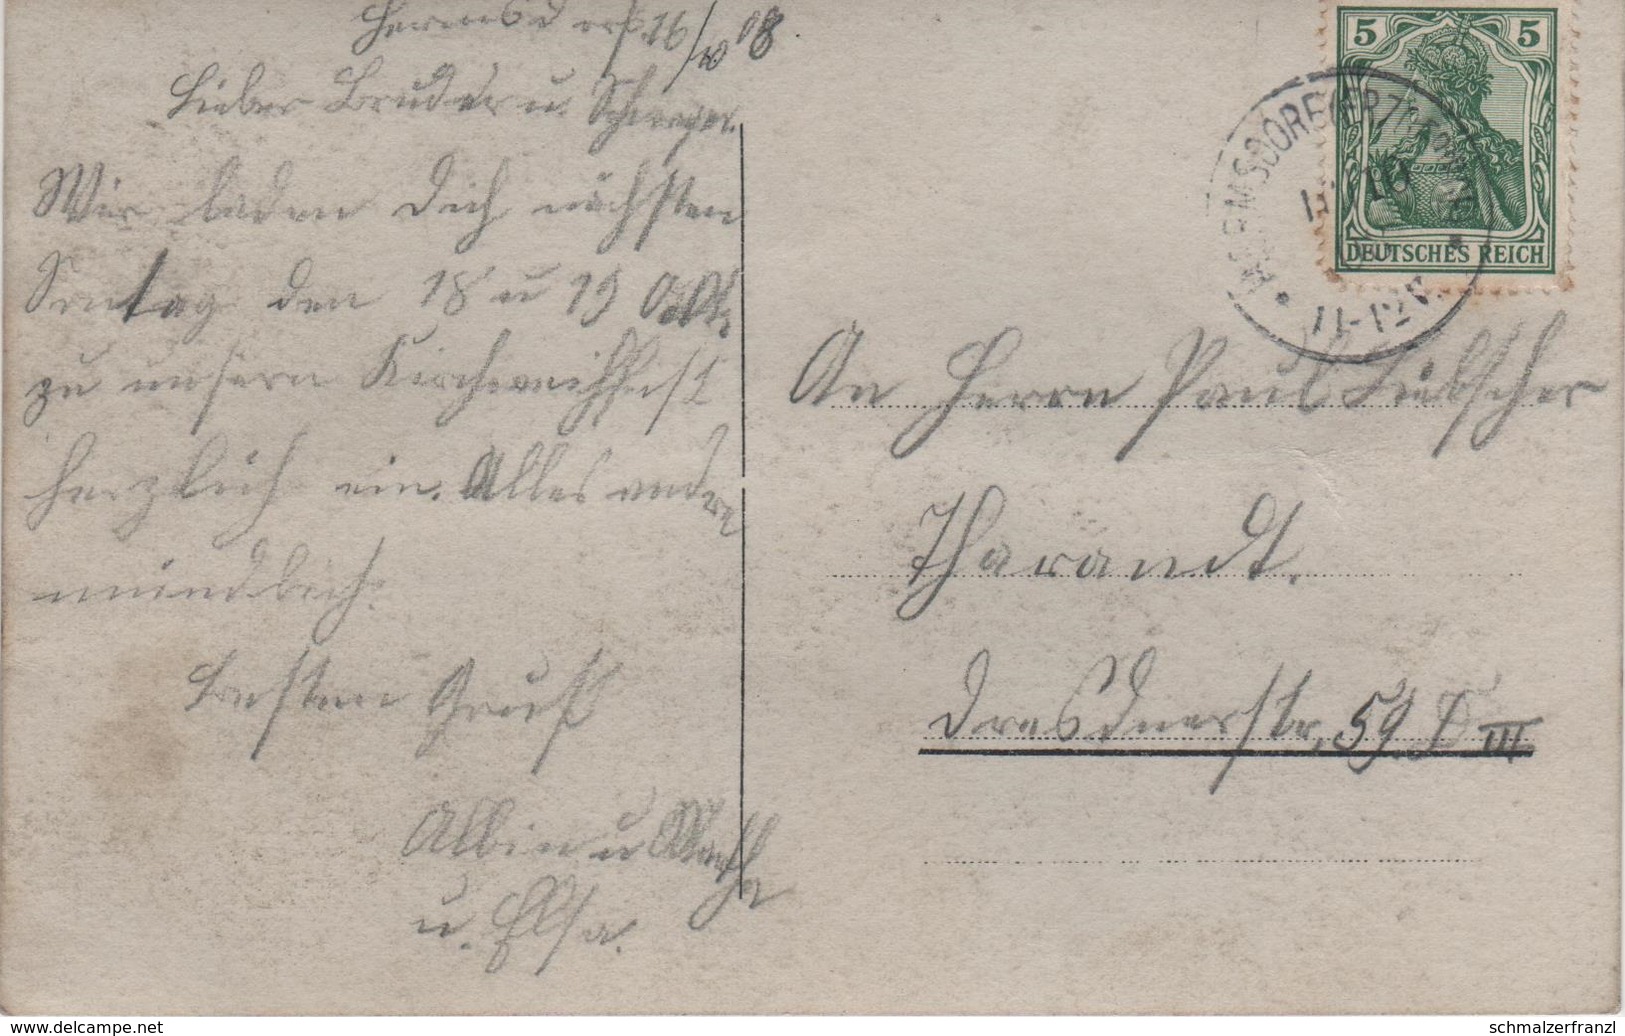 Hermsdorf. 16/10 08
Lieber Bruder u. Schwager.
Wir laden Dich nächsten
Sontag den 18 u 19 Okt.
zu unsern Kirchweihfest
herzlich ein. Alles andere
mündlich.
Besten Gruß
Albin u Martha
u. Elsa.
5 5
DEUTSCHES REICH
HERMSDORF
11-12V.
An Herrn Paul Liebscher
Tharandt.
Dresdnerstr. 59. D III
delcampe.net
schmalzerfranzl